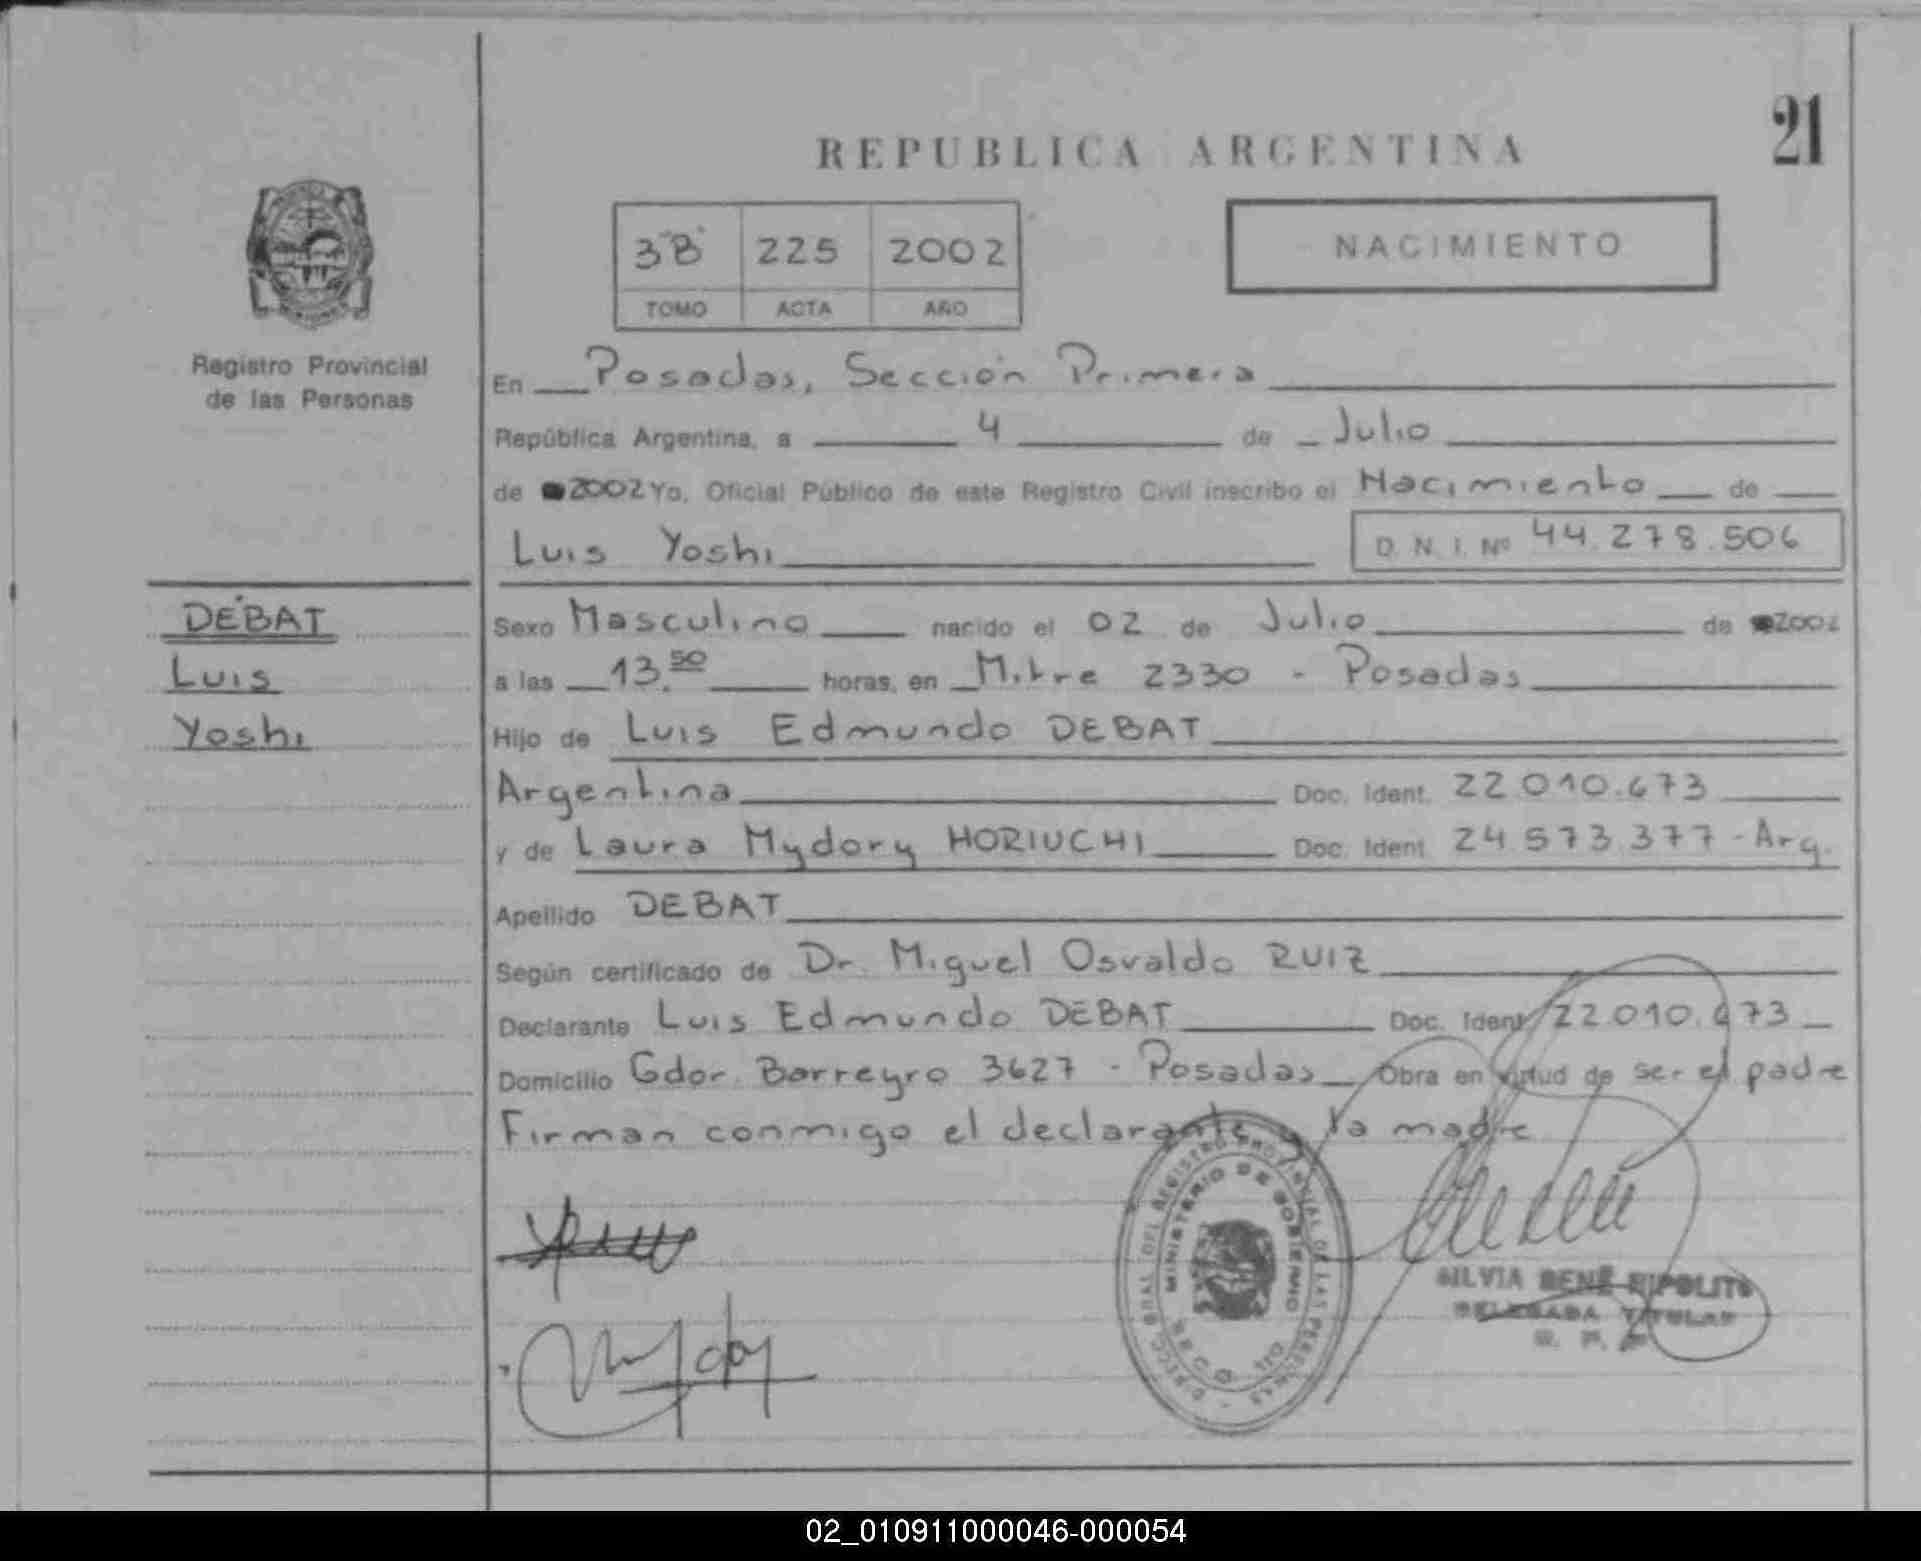 21
REPUBLICA ARGENTINA
3"B" 225 2002
TOMO ACTA AÑO
NACIMIENTO
Registro Provincial
de las Personas
En Posadas, Sección Primera
República Argentina, a 4 de Julio
de 2002 Yo, Oficial Público de este Registro Civil inscribo el Nacimiento de
Luis Yoshi D. N. I. Nº 44.278.506
DEBAT
Luis
Yoshi
Sexo Masculino nacido el 02 de Julio de 2002
a las 13.50 horas, en Mitre 2330 - Posadas
Hijo de Luis Edmundo DEBAT
Argentina Doc. Ident. 22.010.673
y de Laura Mydory HORIUCHI Doc. Ident. 24.573.377 - Arg.
Apellido DEBAT
Según certificado de Dr. Miguel Osvaldo RUIZ
Declarante Luis Edmundo DEBAT Doc. Ident. 22.010.673
Domicilio Gdor. Barreyro 3627 - Posadas Obra en virtud de ser el padre
Firman conmigo el declarante y la madre
MINISTERIO DE GOBIERNO
SILVIA RENÉ RIPOLITO
DELEGADA TITULAR
02_010911000046-000054